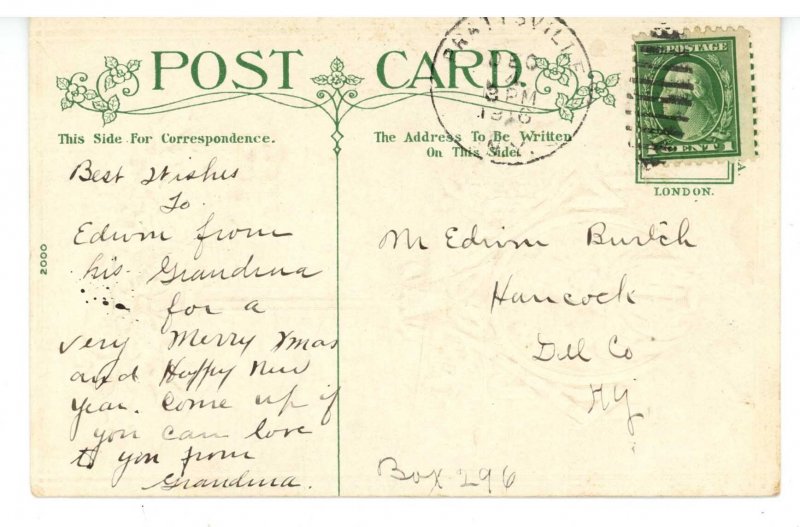 POST CARD
This Side For Correspondence.
The Address To Be Written
On This Side.
PRATTSVILLE
DEC
3 PM
1916
N.Y.
POSTAGE
1 CENT 1
LONDON.
2000
Best Wishes
To
Edwin from
his Grandma
for a
very Merry Xmas
and Happy New
Year. Come up if
you can love
to you from
Grandma.
M Edwin
Hancock
Del Co
NY
Box 296